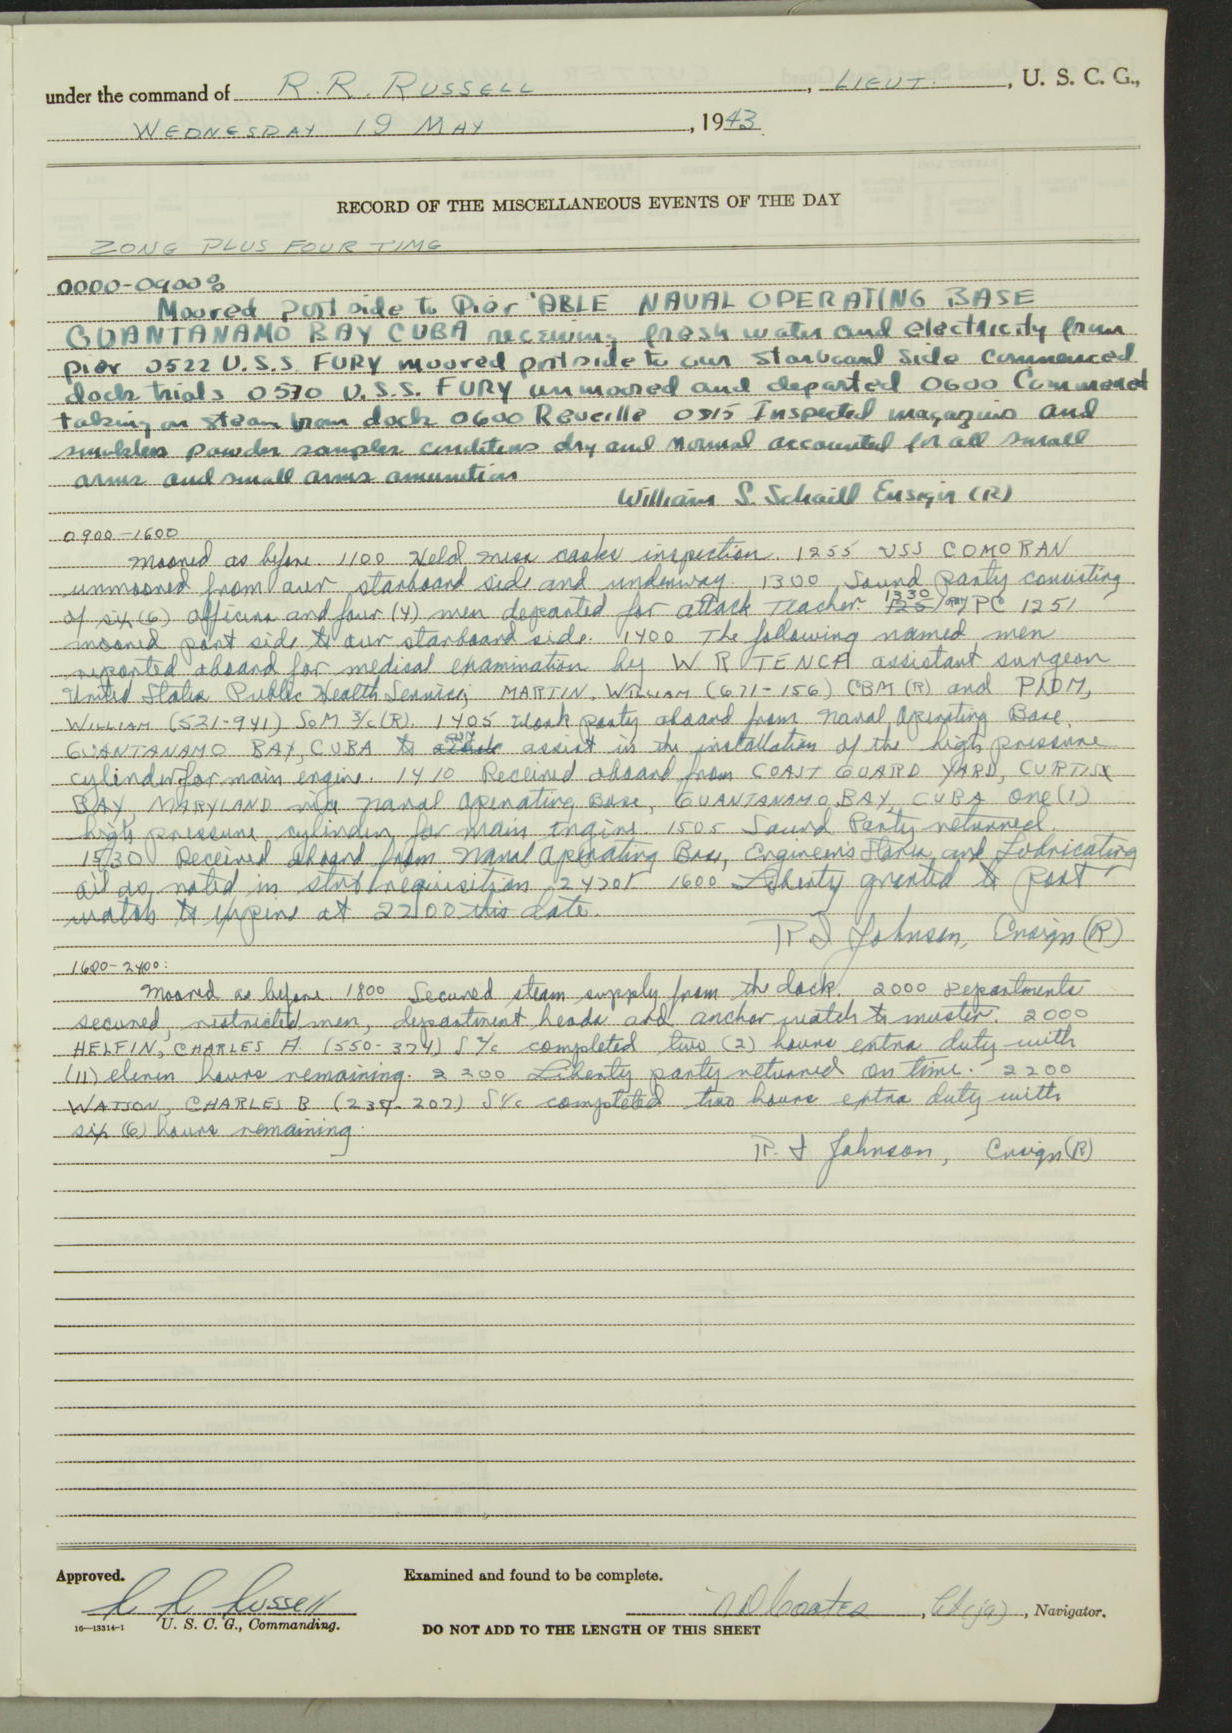 under the command of R. R. RUSSELL, LIEUT., U. S. C. G.,
WEDNESDAY 19 MAY, 1943.
RECORD OF THE MISCELLANEOUS EVENTS OF THE DAY
ZONE PLUS FOUR TIME
0000-0900:
Moored port side to Pier 'ABLE NAVAL OPERATING BASE
GUANTANAMO BAY CUBA receiving fresh water and electricity from
pier 0522 U.S.S. FURY moored portside to our starboard side Commenced
dock trials 0570 U.S.S. FURY unmoored and departed 0600 Commenced
taking on steam from dock 0600 Reveille 0815 Inspected magazines and
smokless powder samples conditions dry and normal accounted for all small
arms and small arms amunition
William S. Schaill Ensign (R)
0900-1600
Moored as before. 1100 Held mess cooks inspection. 1255 USS COMORAN
unmoored from our starboard side and underway. 1300 Sound party consisting
of six (6) officers and four (4) men departed for attack teacher. 1330 PC 1251
moored port side to our starboard side. 1400 The following named men
reported aboard for medical examination by W R TENCA assistant surgeon
United States Public Health Service, MARTIN, WILLIAM (671-156) CBM (R) and
WILLIAM (521-941) SoM 3/c (R). 1405 Work party aboard from Naval Operating Base,
GUANTANAMO BAY, CUBA to assist in the installation of the high pressure
cylinder for main engine. 1410 Received aboard from COAST GUARD YARD, CURTIS
BAY, MARYLAND via Naval Operating Base, GUANTANAMO BAY, CUBA one (1)
high pressure cylinder for main engine. 1505 Sound Party returned.
1530 Received aboard from Naval Operating Base, Engineers Stores and Lubricating
oil as noted in requisition 1600 Liberty granted to port
watch to expire at 2200 this date.
R I Johnson, Ensign (R)
1600-2400:
Moored as before. 1800 Secured steam supply from the dock. 2000 Departments
secured, restricted men, department heads and anchor watch to muster. 2000
HELFIN, CHARLES A. (550-374) S 1/c completed two (2) hours extra duty with
(11) eleven hours remaining. 2200 Liberty party returned on time. 2200
WATSON, CHARLES B (237-207) S 1/c completed two hours extra duty with
six (6) hours remaining.
R. I Johnson, Ensign (R)
Approved. Examined and found to be complete.
R R Russell
U. S. C. G., Commanding. Coates, Lt (jg), Navigator.
16—13314-1
DO NOT ADD TO THE LENGTH OF THIS SHEET